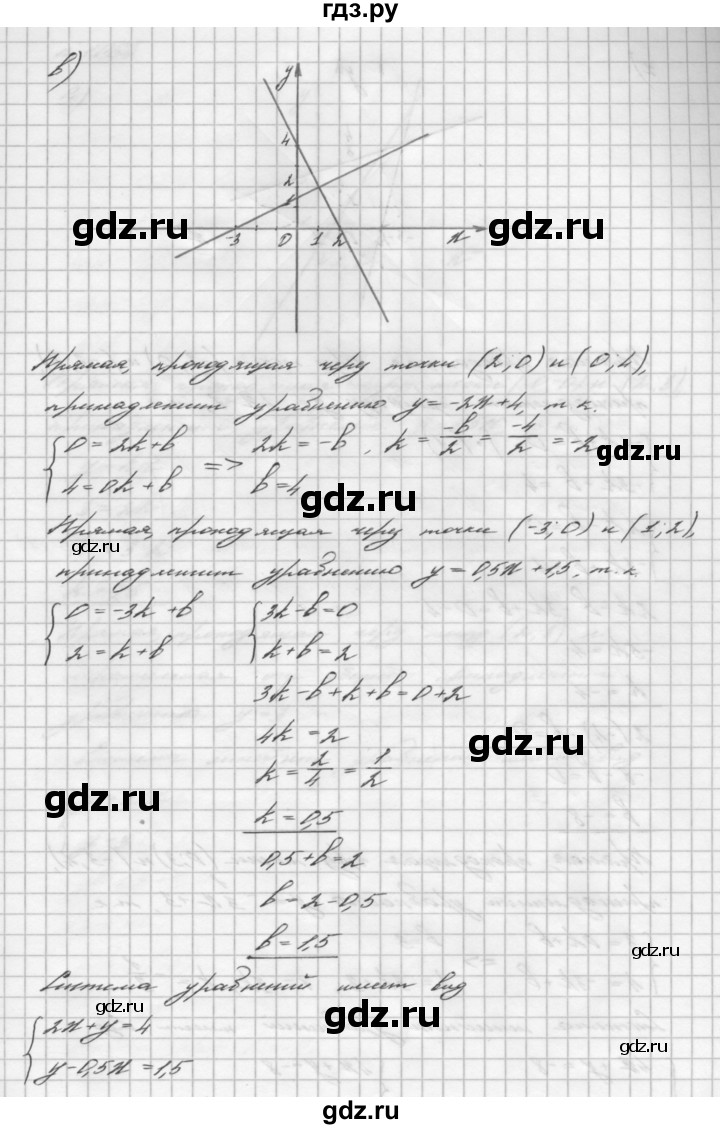 гдз.ру
в)
y
4
2
1
-3 0 1 2 x
gdz.ru gdz.ru
Прямая, проходящая через точки (2; 0) и (0; 4),
принадлежит уравнению y = -2x + 4, т.к.
{ 0 = 2k + b => 2k = -b, k = -b/2 = -4/2 = -2
4 = 0k + b b = 4
gdz.ru
gdz.ru
Прямая, проходящая через точки (-3; 0) и (1; 2),
gdz.ru
принадлежит уравнению y = 0,5x + 1,5, т.к.
{ 0 = -3k + b { 3k - b = 0
2 = k + b k + b = 2
3k - b + k + b = 0 + 2
4k = 2
gdz.ru
k = 2/4 = 1/2
gdz.ru
k = 0,5
0,5 + b = 2
b = 2 - 0,5
b = 1,5
gdz.ru
Система уравнений имеет вид
gdz.ru
gdz.ru
{ 2x + y = 4
gdz.ru
y - 0,5x = 1,5
gdz.ru